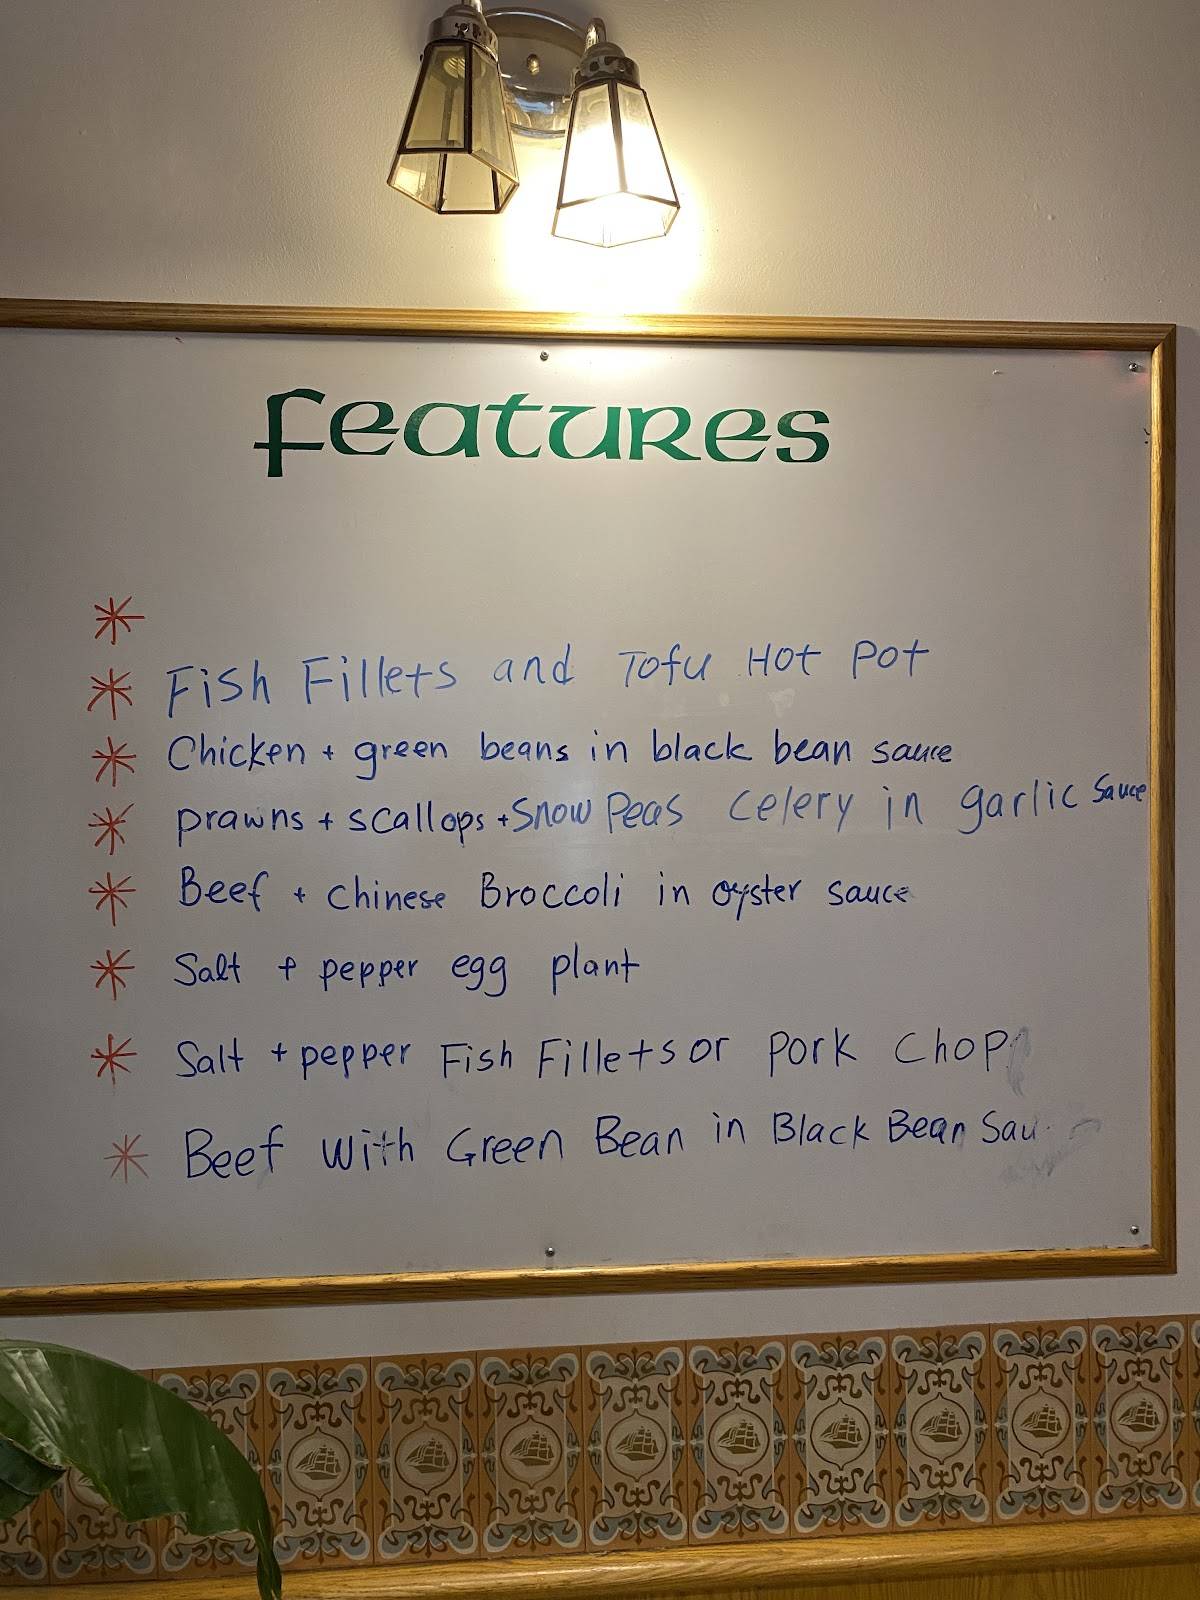 Features
*
* Fish Fillets and Tofu Hot Pot
* Chicken + green beans in black bean sauce
* prawns + scallops + Snow Peas Celery in garlic Sauce
* Beef + Chinese Broccoli in oyster sauce
* Salt + pepper egg plant
* Salt + pepper Fish Fillets or Pork Chop
* Beef with Green Bean in Black Bean Sau